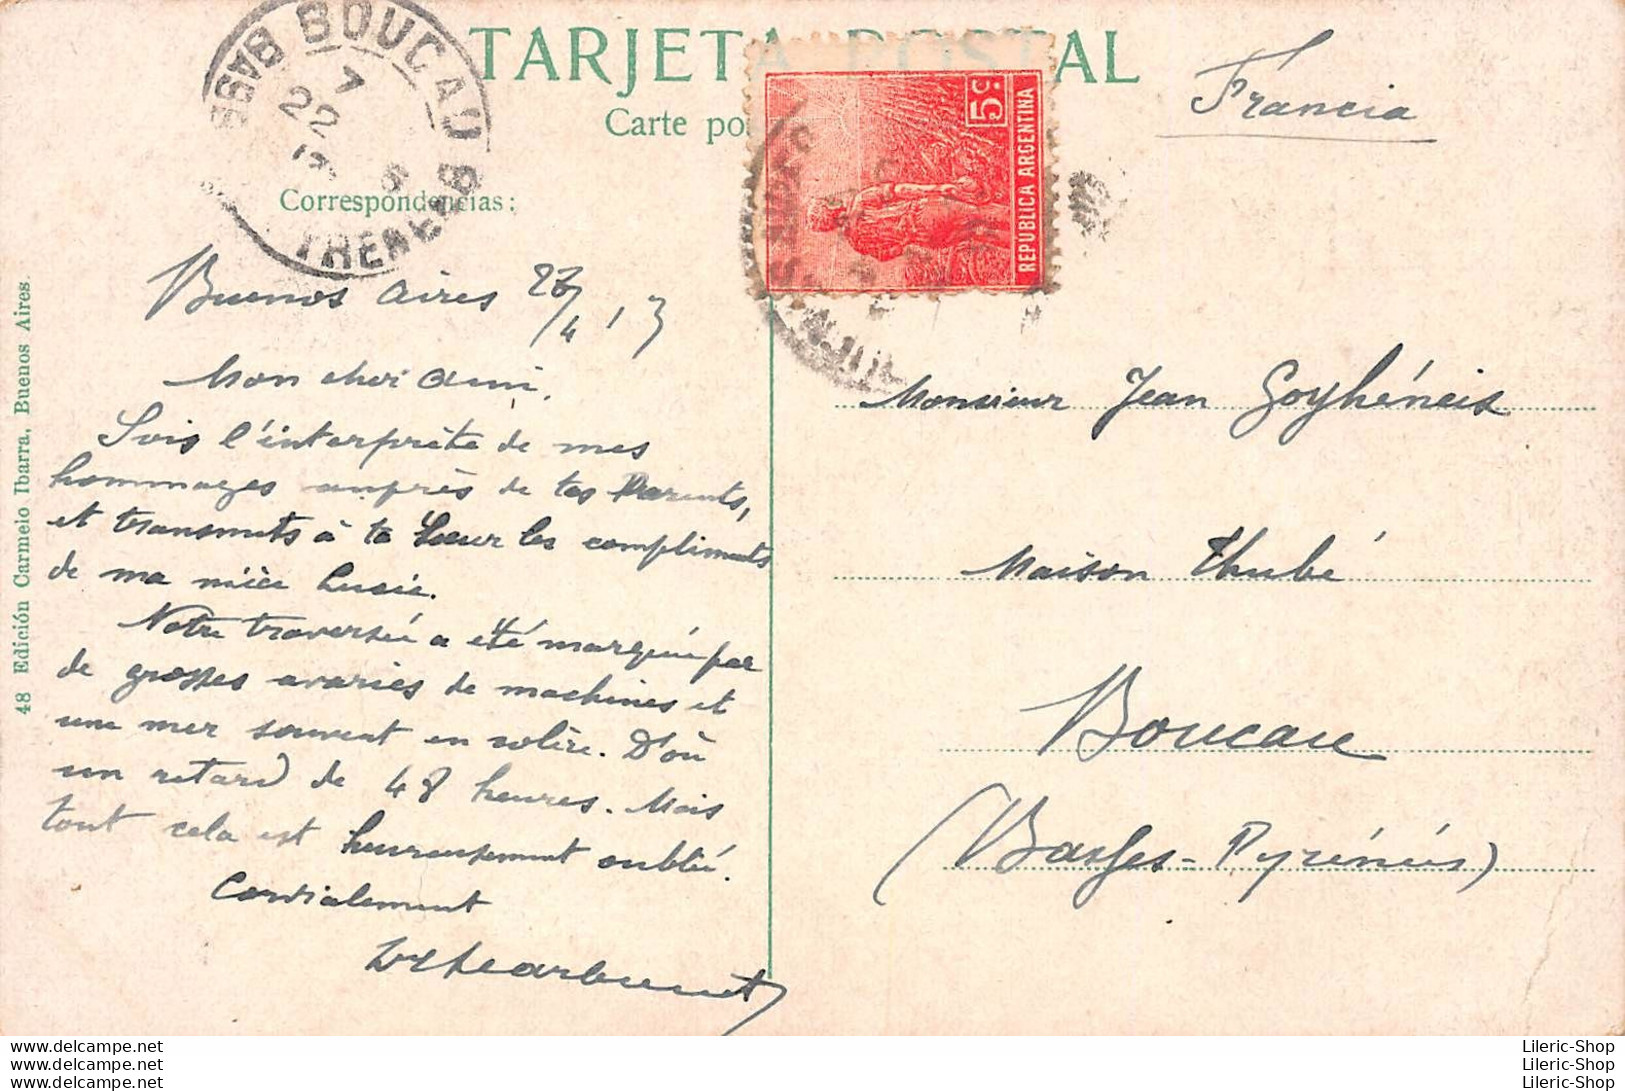 TARJETA POSTAL
Carte po
Francia
BOUCAU
7
22
5
5c
REPUBLICA ARGENTINA
Correspondencias:
48 Edición Carmelo Ibarra, Buenos Aires
Buenos Aires 23/4/13
Mon cher ami,
Sois l'interprète de mes
hommages auprès de tes Parents,
et transmets à ta Sœur les compliments
de ma nièce Lucie.
Notre traversée a été marquée par
de grosses avaries de machines et
une mer souvent en colère. D'où
un retard de 48 heures. Mais
tout cela est heureusement oublié.
Cordialement
Monsieur Jean Goyhéneis
Maison Thubé
Boucau
(Basses-Pyrénées)
www.delcampe.net
www.delcampe.net
www.delcampe.net
Lileric-Shop
Lileric-Shop
Lileric-Shop